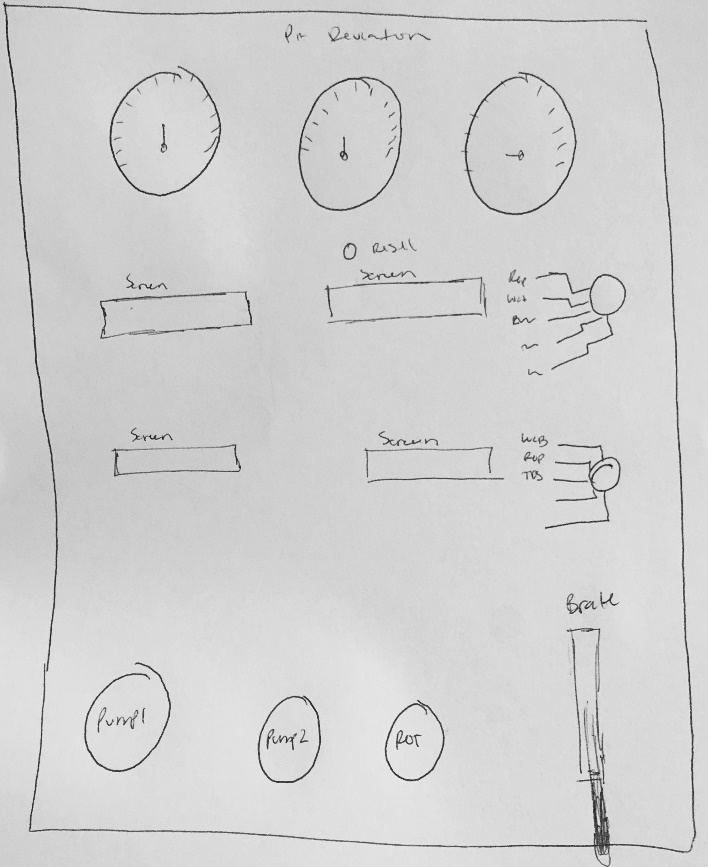 Pit Deviation
O Reset
Screen
Screen
Rop
WOB
Screen
Screen
WOB
ROP
TDS
Brake
Pump1
Pump2
ROT